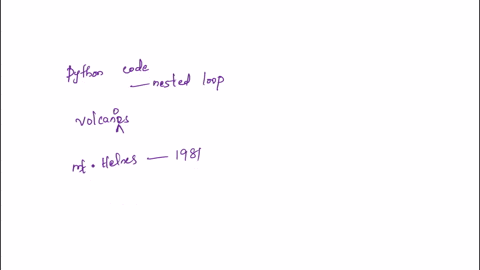 Python code
— nested loop
volcanoes
mt. Helnes — 1981